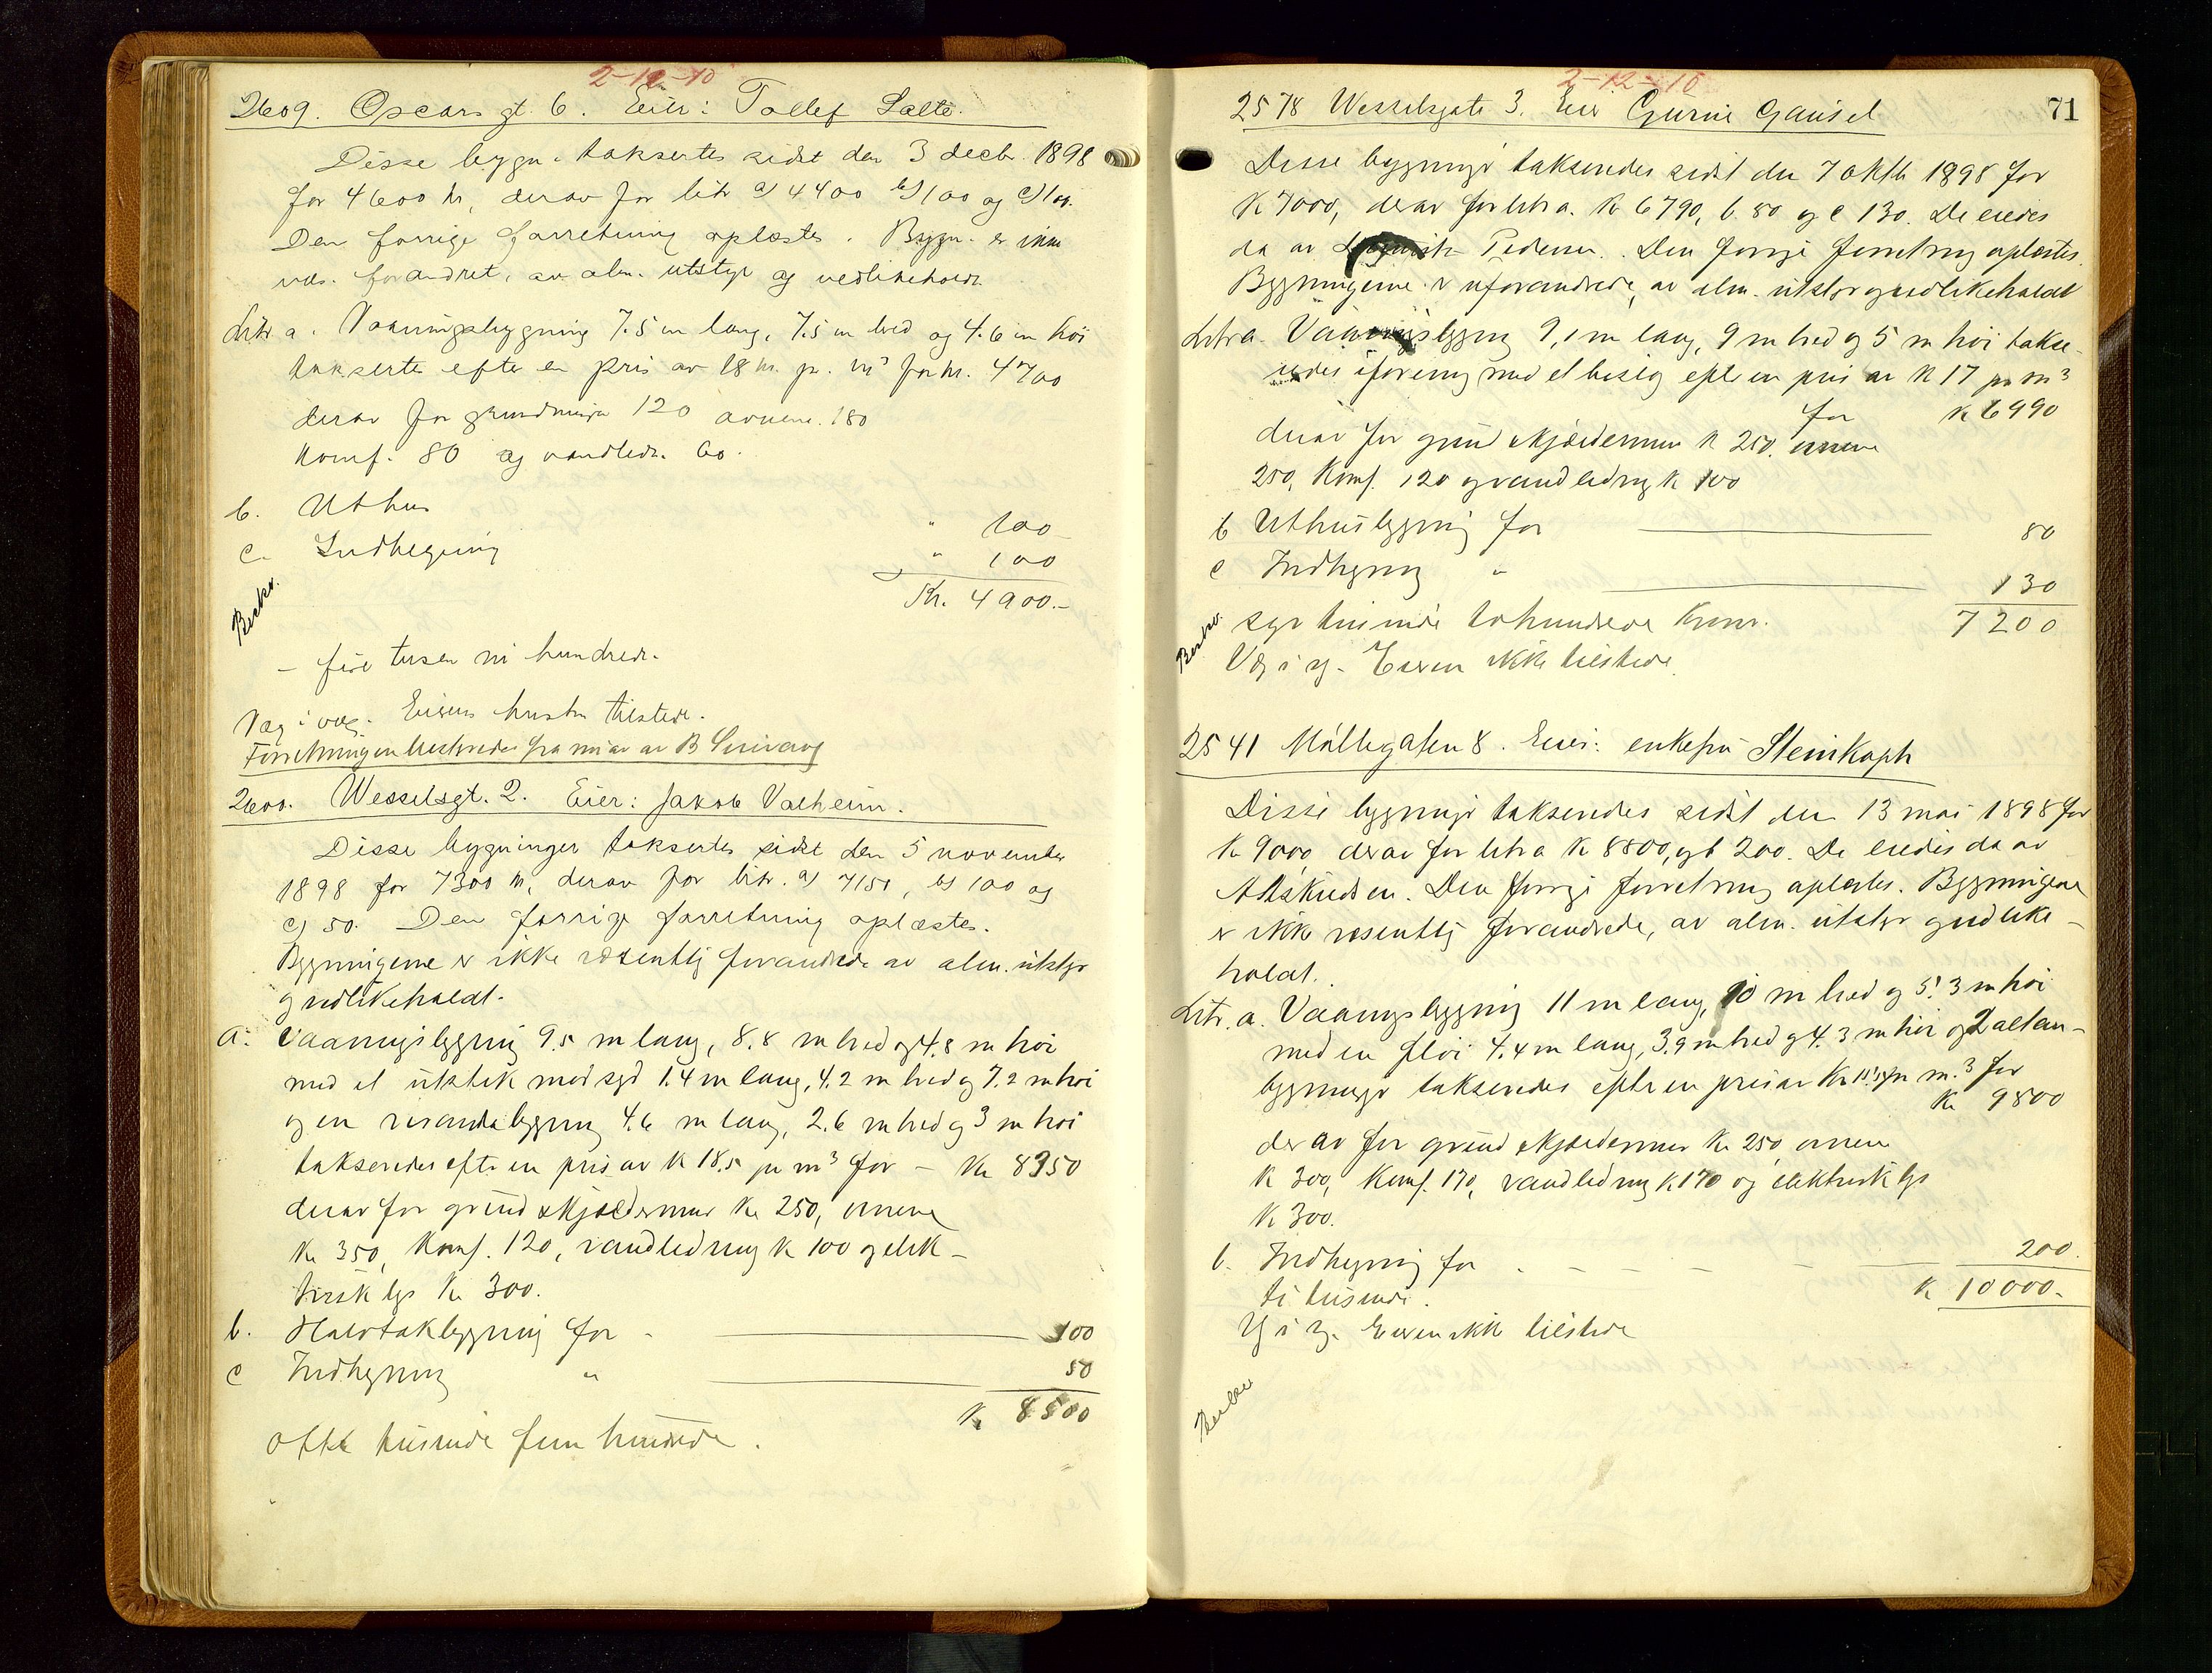 2-12-10
2609. Oscars gt. 6. Eier: Tollef Salte.
Disse bygn. taksertes sidst den 3 decbr. 1898
for 4600 kr, derav for litr a) 4400 b) 100 og c) 100.
Den forrige forretning oplæstes. Bygn. er ikke
væs. forandret, av alm. utstyr og vedlikeholdt.
Litr a. Vaaningsbygning 7.5 m lang, 7.5 m bred og 4.6 m høi
taksertes efter en pris av 18 kr. pr. m³ for kr. 4700
derav for grundmur 120 ovnene 180
komf. 80 og vandledn. 60.
b. Uthus " 100
c. Indhegning " 100
Kr. 4900.-
- fire tusen ni hundrede.
Væg i væg. Eierens hustru tilstede.
Forretningen beskrevet fra nu av av B
2600. Wesselsgt. 2. Eier: Jakob Valheim.
Disse bygninger taksertes sidst den 5 november
1898 for 7300 kr, derav for litr. a) 7150, b) 100 og
c) 50. Den forrige forretning oplæstes.
Bygningerne er ikke væsentlig forandrede av alm. utstyr
og vedlikeholdt.
a. Vaaningsbygning 9.5 m lang, 8.8 m bred og 4.8 m høi
med et utstik mod syd 1.4 m lang, 4.2 m bred og 7.2 m høi
og en verandabygning 4.6 m lang, 2.6 m bred og 3 m høi
takseredes efter en pris av K 18.5 pr m³ for - Kr 8350
derav for grund & kjældermur Kr 250, ovnene
Kr 350, Komf. 120, vandledning K 100 og elek-
trisk lys Kr 300.
b. Halvtakbygning for - 100
c Indhegning " 50
K. 8500
otte tusinde fem hundrede.
2-12-10
71
2578 Wesselsgate 3. Eier Gurine Gausel
Disse bygninger takseredes sidst den 7 oktb 1898 for
K 7000, derav for litra. K 6790, b. 80 og c 130. De eiedes
da av Pedersen. Den forrige forretning oplæstes.
Bygningerne er uforandrede, av alm. utstyr og vedlikeholdt
Litra a. Vaaningsbygning 9,1 m lang, 9 m bred og 5 m høi takse-
redes i forening med et bislag efter en pris av K 17 pr m³
for K 6990
derav for grund & kjældermur K 250. ovnene
250, Komf. 120 og vandledning K 100
b Uthusbygning for 80
c Indhegning " 130
7200
syv tusinde tohundrede Kroner.
Væg i væg. Eieren ikke tilstede.
2541 Møllegaten 8. Eier: enkefru Steinkopf
Disse bygninger takseredes sidst den 13 mai 1898 for
Kr 9000, derav for litra K 8800, og b 200. De eiedes da av
A. Den forrige forretning oplæstes. Bygningene
er ikke væsentlig forandrede, av alm. utstyr og vedlike-
holdt.
Litr. a. Vaaningsbygning 11 m lang, 10 m bred og 5.3 m høi
med en fløi 4.4 m lang, 3.9 m bred og 4.3 m høi og 2 altan-
bygninger takseredes efter en pris av Kr pr m.³ for
Kr 9800
derav for grund & kjældermur Kr 250, ovnene
K 300, Komf. 170, vandledning K 170 og elektrisk lys
K 300.
b. Indhegning for 200.
K 10000.-
ti tusinde.
Væg i væg. Eieren ikke tilstede